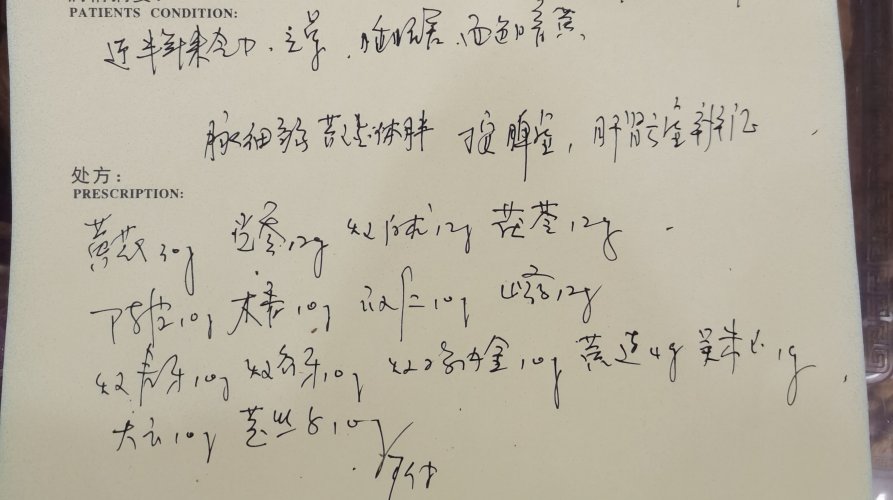 PATIENTS CONDITION:
近半年来乏力、立皋、睡眠居、面色暗黄
脉细弱 苔 体胖 按脾虚，肝肾亏虚辨证
处方：
PRESCRIPTION:
黄芪30g 党参12g 炒白术12g 茯苓12g
陈皮10g 木香10g 苡仁10g 山药12g
炒麦牙10g 炒谷牙10g 炒鸡内金10g 黄连4g 吴朱 1g
大云10g 菟丝子10g